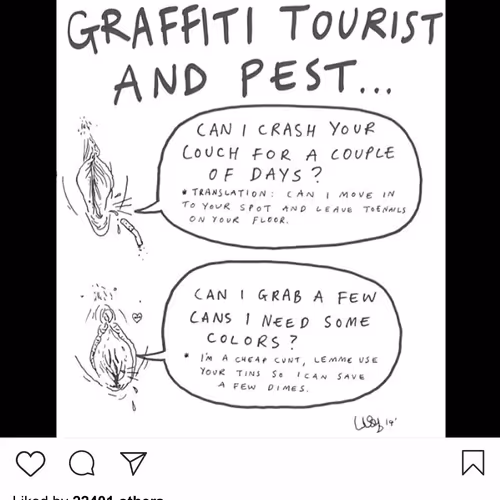 GRAFFITI TOURIST
AND PEST...
CAN I CRASH YOUR
COUCH FOR A COUPLE
OF DAYS?
* TRANSLATION: CAN I MOVE IN
TO YOUR SPOT AND LEAVE TOENAILS
ON YOUR FLOOR.
CAN I GRAB A FEW
CANS I NEED SOME
COLORS?
* I'M A CHEAP CUNT, LEMME USE
YOUR TINS SO I CAN SAVE
A FEW DIMES.
14'